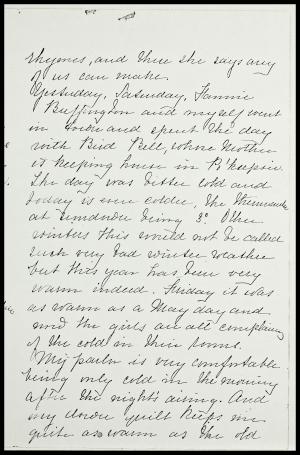 rhymes, and these she says any
of us can make.
Yesterday, Saturday, Fannie
Buffington and myself went
in town and spent the day
with Bird Bell, whose mother
is keeping house in P'keepsie.
The day was bitter cold and
today is even colder, the
at sundown being 3°. Other
winters this would not be called
such very bad winter weather
but this year has been very
warm indeed. Friday it was
as warm as a May day and
now the girls are all complaining
of the cold in their rooms.
My parlor is very comfortable
being only cold in the morning
after the night's airing. And
my down quilt keeps me
quite as warm as the old